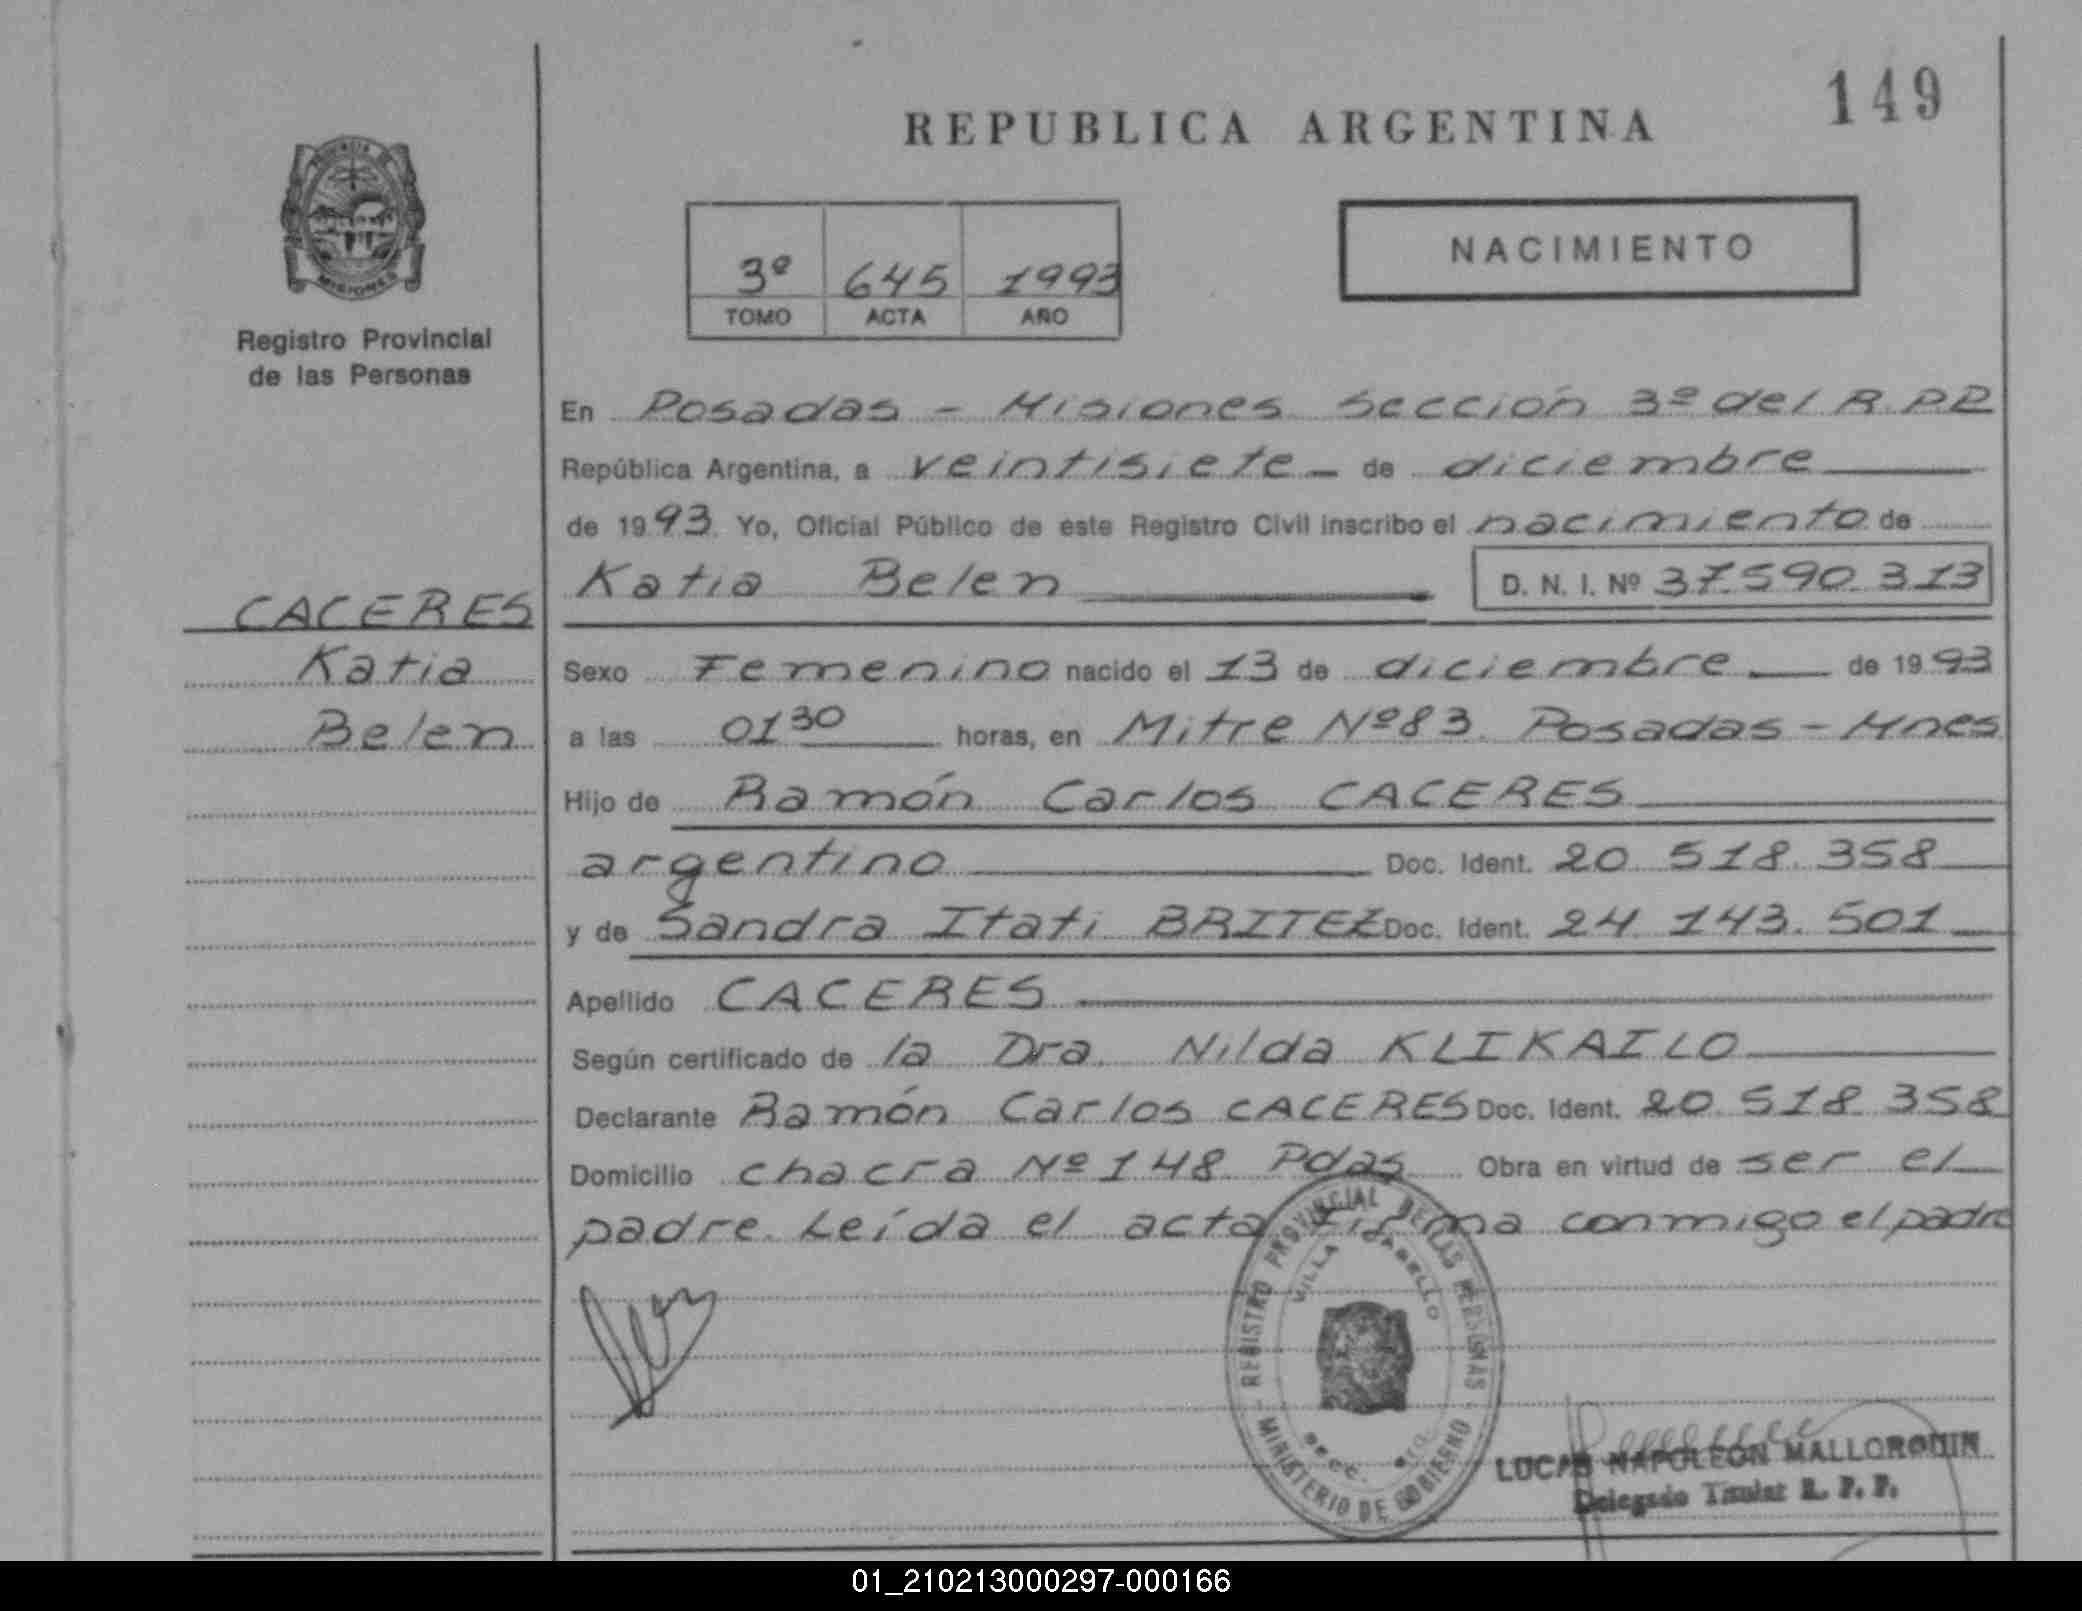 149
REPUBLICA ARGENTINA
NACIMIENTO
3º 645 1993
TOMO ACTA AÑO
PROVINCIA DE MISIONES
Registro Provincial
de las Personas
En Posadas - Misiones Sección 3º del R.PP
República Argentina, a veintisiete de diciembre
de 1993 Yo, Oficial Público de este Registro Civil inscribo el nacimiento de
Katia Belen D. N. I. Nº 37.590.313
CACERES
Katia
Belen
Sexo Femenino nacido el 13 de diciembre de 1993
a las 01³⁰ horas, en Mitre Nº 83. Posadas - Mnes
Hijo de Ramón Carlos CACERES
argentino Doc. Ident. 20 518.358
y de Sandra Itati BRITEZ Doc. Ident. 24.143.501
Apellido CACERES
Según certificado de la Dra. Nilda KLIKAILO
Declarante Ramón Carlos CACERES Doc. Ident. 20.518.358
Domicilio chacra Nº 148 Pdas Obra en virtud de ser el
padre. Leída el acta firma conmigo el padre
REGISTRO PROVINCIAL DE LAS PERSONAS
VILLA
SECC. 3ra.
MINISTERIO DE GOBIERNO
LUCAS NAPOLEON
Delegado Titular R. P. P.
01_210213000297-000166